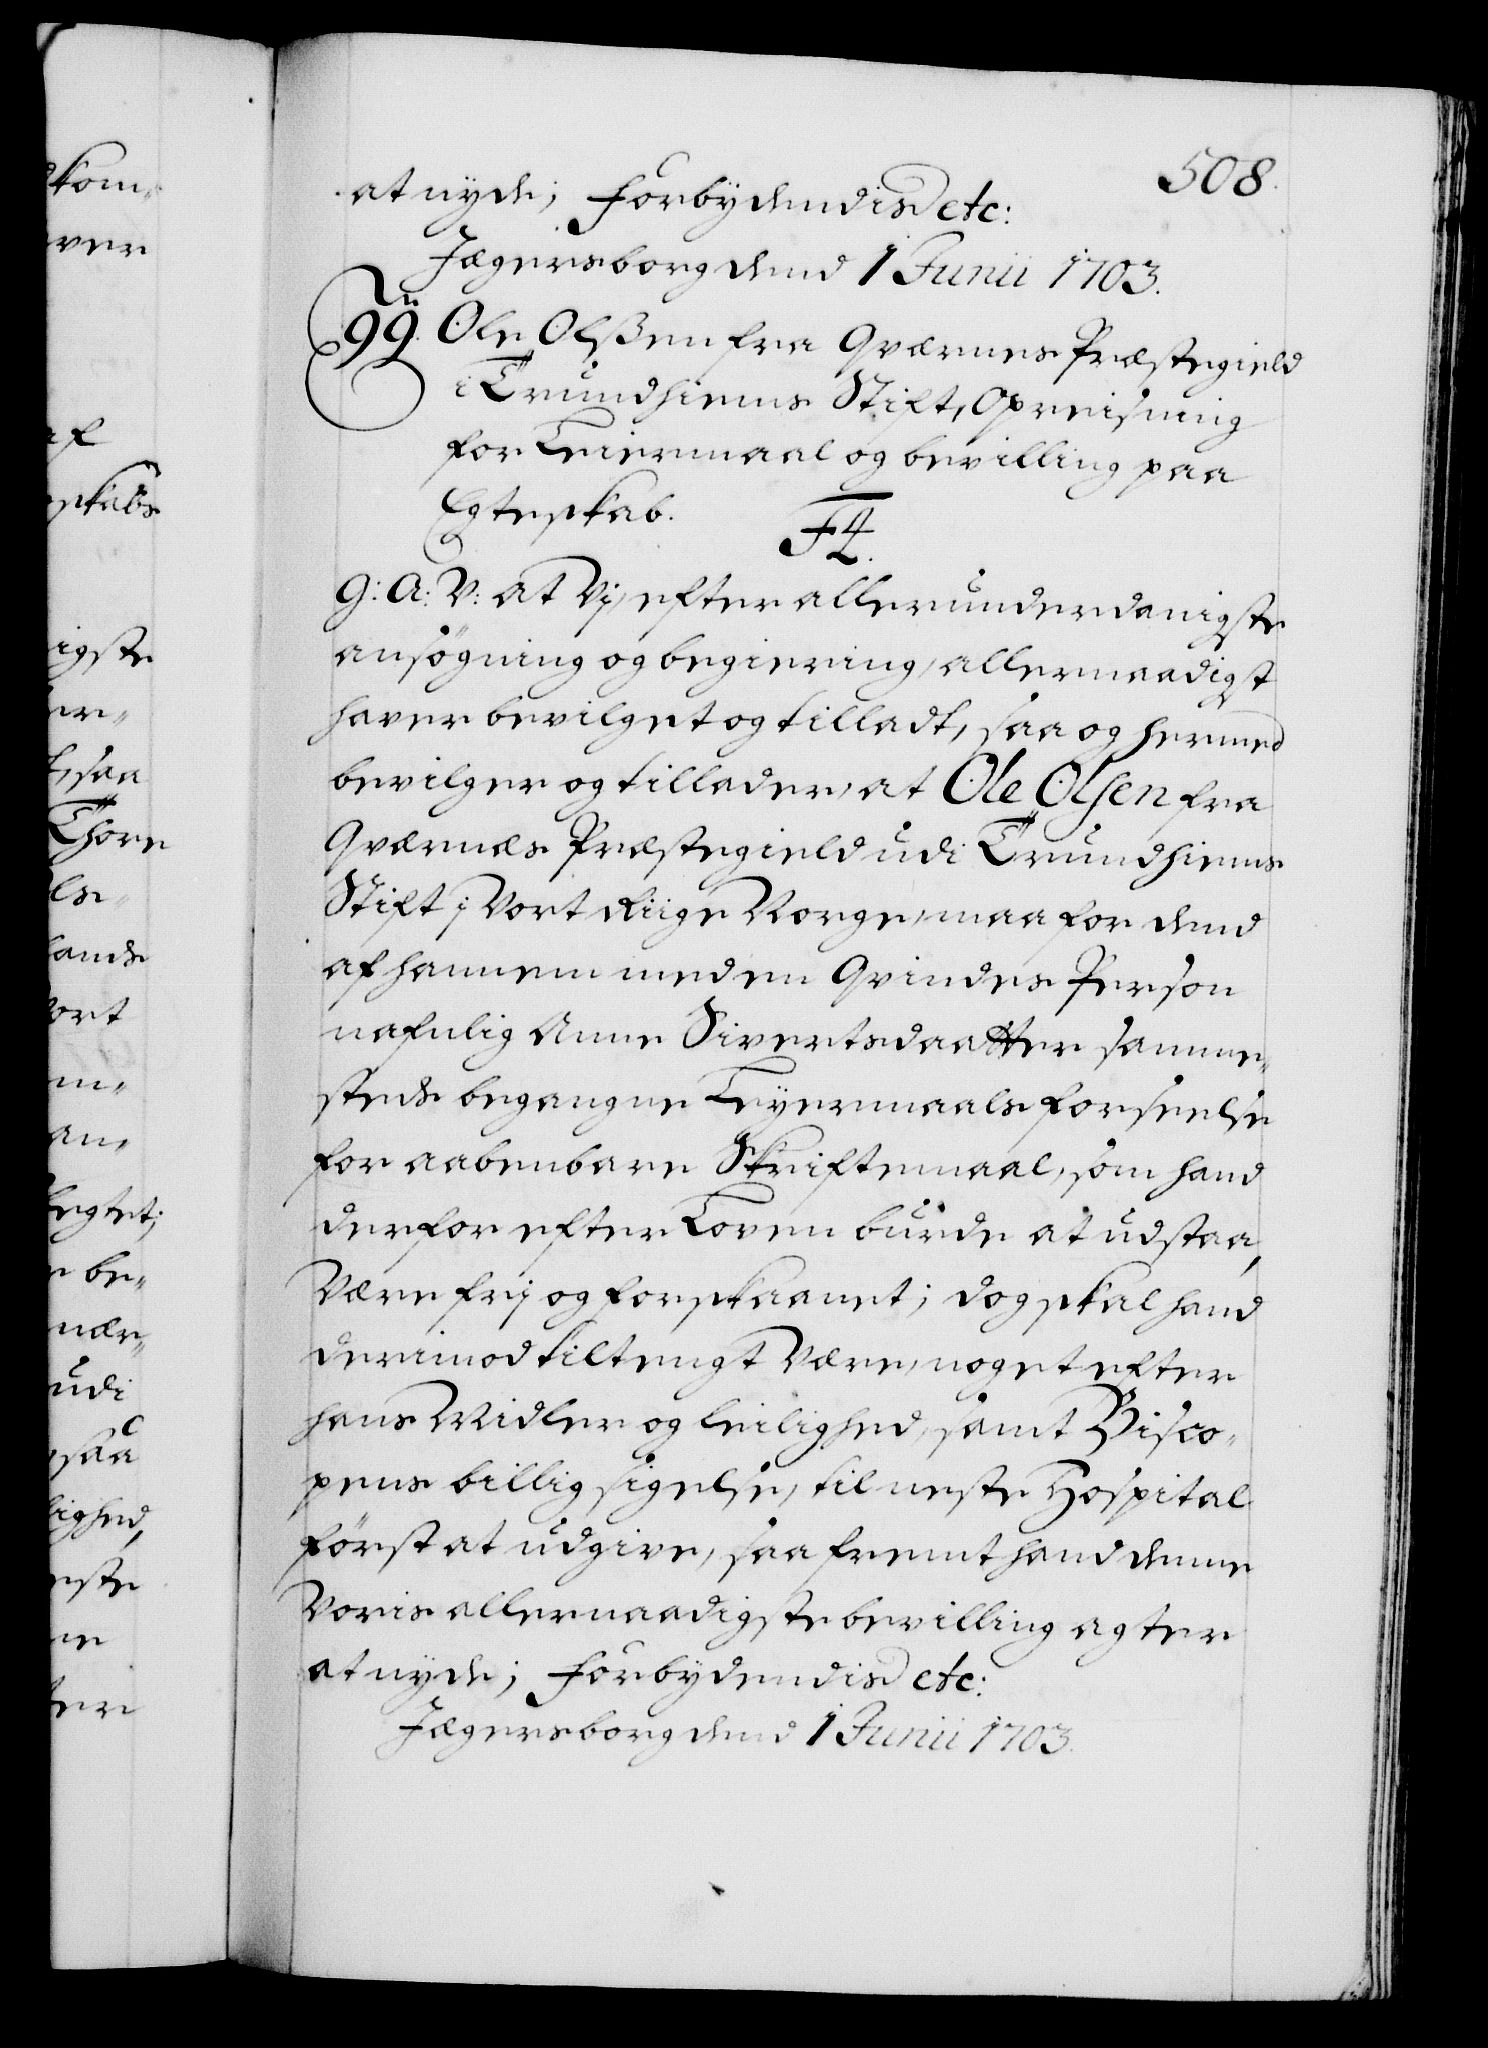 508.
at nyde; Forbydendis etc:
Jægersborg dend 1 Junii 1703.
99. Ole Olssen fra Qværnes Præstegield
i Trundhiems Stift, Opreisning
for Leiermaal og bevilling paa
Egteskab.
F4.
G: A: V: at Vj, efter allerunderdanigste
ansögning og begiering, allernaadigst
haver bevilget og tilladt, saa og hermed
bevilger og tillader, at Ole Olsen fra
Qværnæs Præstegield udi Trundhiems
Stift i Vort Riige Norge, maa for dend
af hannem med en Qvindes Person
nafnlig Anne Sivertsdaatter samme-
steds begangne Leyermaals forseelse
for aabenbare Skriftemaal, som hand
derfor efter Loven burde at udstaa,
Være frj og forskaanet; dog skal hand
derimod tiltengt Være, noget efter
hans Midler og leilighed, samt Bisco-
pens billig sigelse, til neste Hospital
först at udgive, saa fremt hand denne
Voris allernaadigste bevilling agter
at nyde; Forbydendis etc:
Jægersborg dend 1 Junii 1703.